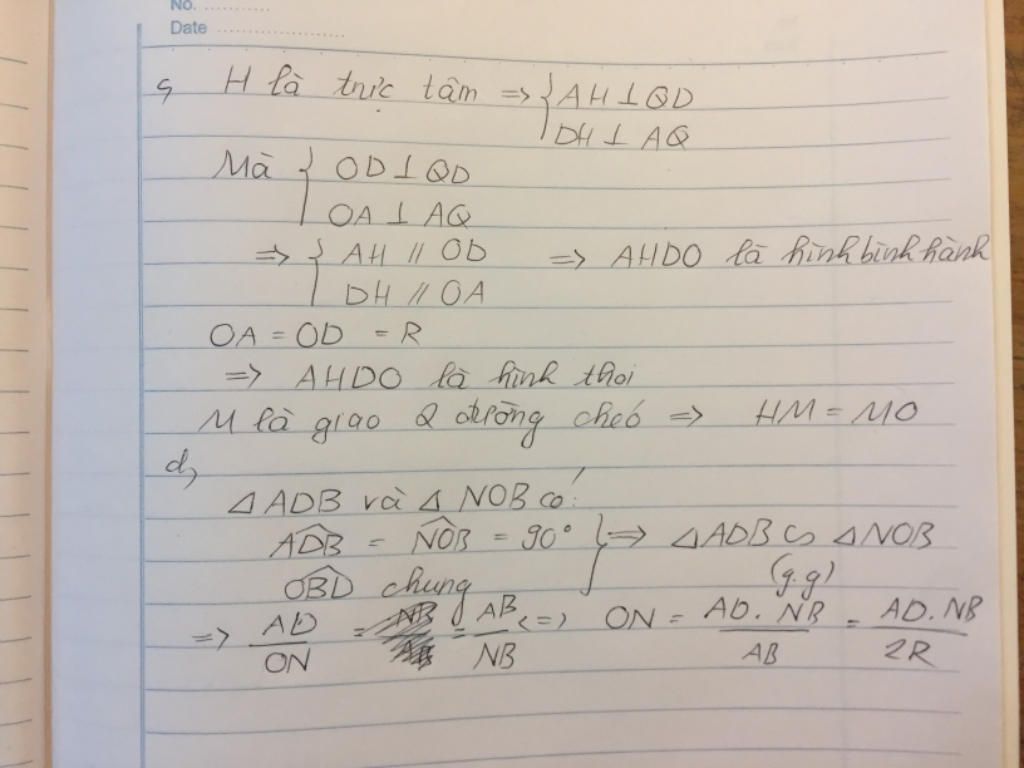 No. ....................
Date ........................
c, H là trực tâm => { AH ⊥ QD
DH ⊥ AQ
Mà { OD ⊥ QD
OA ⊥ AQ
=> { AH // OD => AHDO là hình bình hành
DH // OA
OA = OD = R
=> AHDO là hình thoi
M là giao 2 đường chéo => HM = MO
d,
△ ADB và △ NOB có:
ADB = NOB = 90° } => △ADB ∽ △NOB
OBD chung (g.g)
=> AD/ON = AB/NB <=> ON = AD.NB/AB = AD.NB/2R